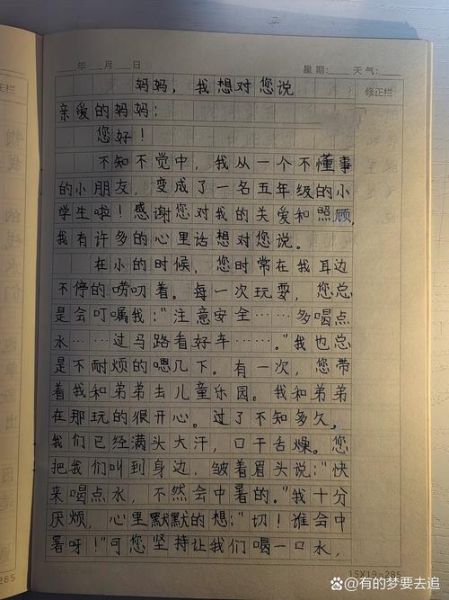 年 月 日 星期: 天气:
妈妈，我想对您说 修正栏
亲爱的妈妈：
您好！
不知不觉中，我从一个不懂事
的小朋友，变成了一名五年级的小
学生啦！感谢您对我的关爱和照顾，
我有许多的心里话想对您说。
在小的时候，您时常在我耳边
不停的唠叨着。每一次玩耍，您总
是会叮嘱我：“注意安全……多喝点
水……过马路看好车……。”我也总
是不耐烦的嗯几下。有一次，您带
着我和弟弟去儿童乐园。我和弟弟
在那玩的很开心。过了不知多久，
我们已经满头大汗，口干舌燥。您
把我们叫到身边，皱着眉头说：“快
来喝点水，不然会中暑的。”我十分
厌烦，心里默默的想：“切！谁会中
暑呀！”可您坚持让我们喝一口水，
15X19=285
@有的梦要去追